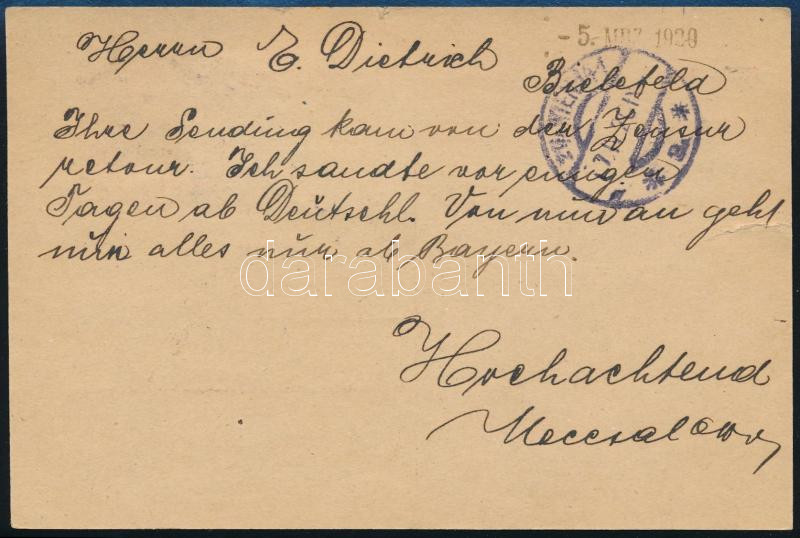 - 5. MRZ. 1920
Herrn E. Dietrich
Bielefeld
Ihre Sendung kam von der Zensur
retour. Ich sandte vor einigen
Tagen ab Deutschl. Von nun an geht
nun alles nur ab Bayern.
darabanth
Hochachtend